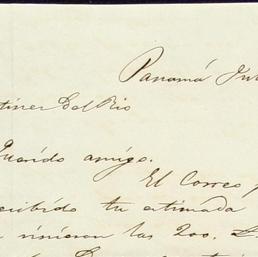 Panamá Ju
tinez Del Rio
Querido amigo.
El Correo p
ecibido tu estimada
vinieron las 200.